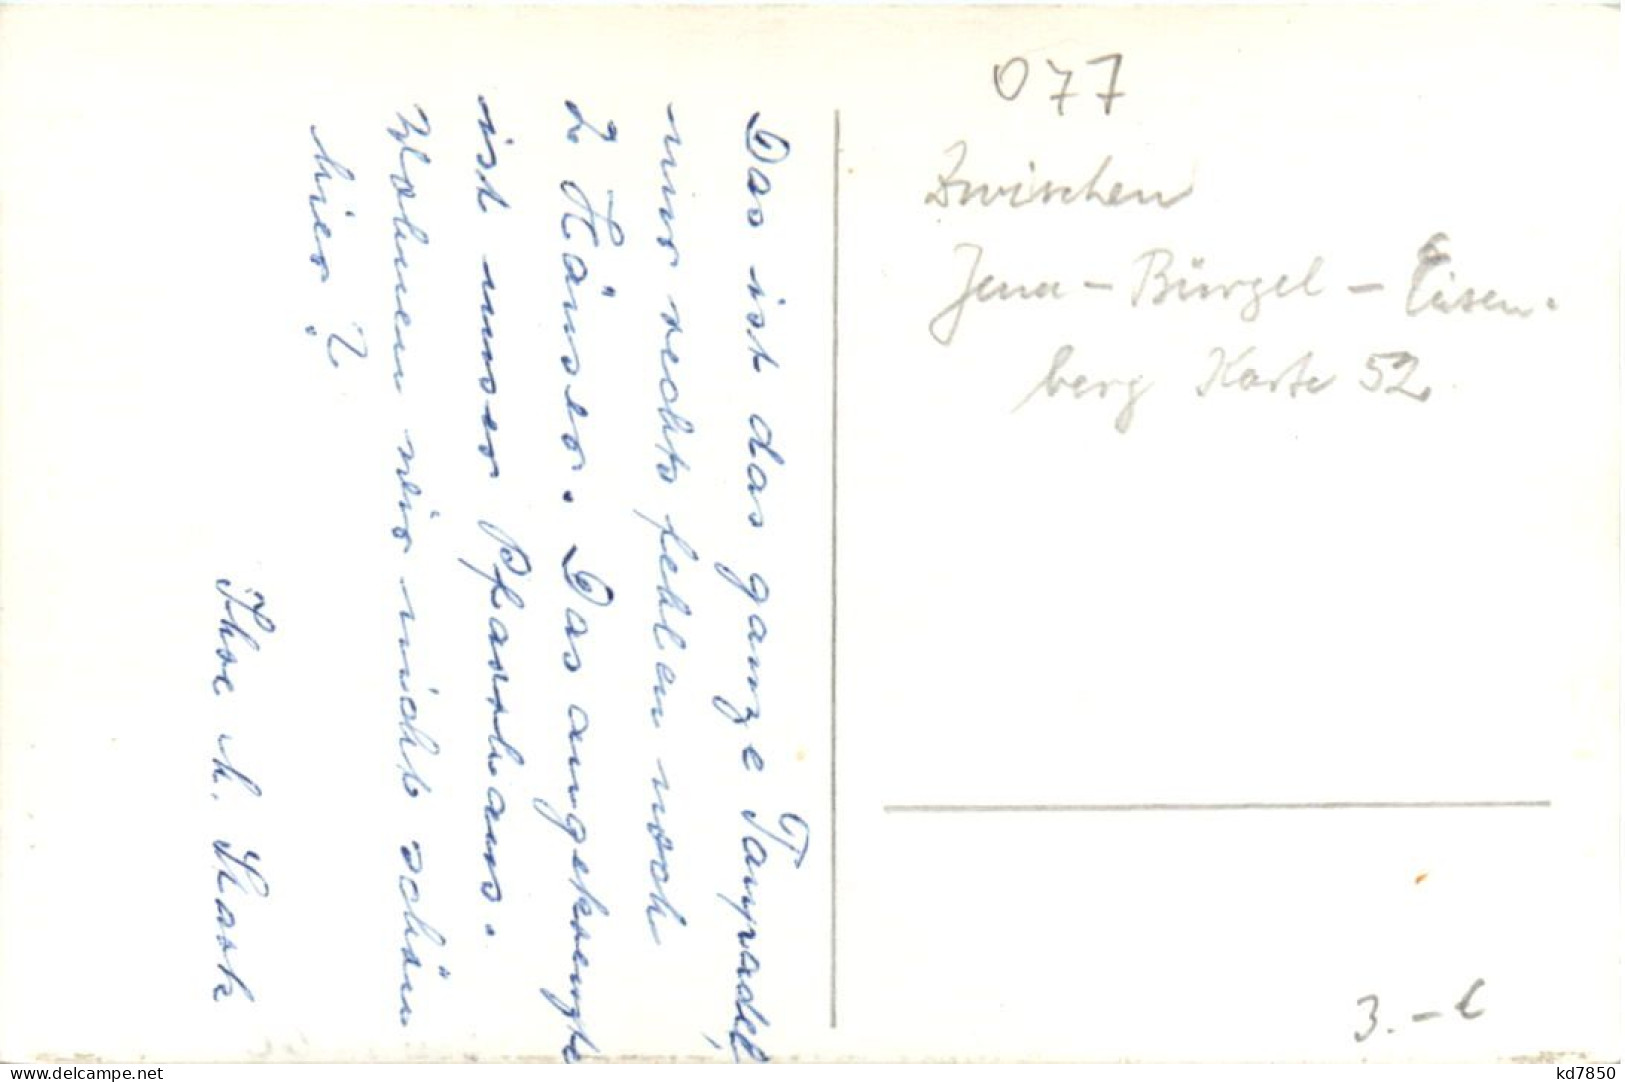 Das ist das ganze Taupadel,
nur rechts fehlen noch
2 Häuser. Das angekreuzte
ist unser Pfarrhaus.
Wohnen wir nicht schön
hier?
Ihre h. Stark
077
Zwischen
Jena - Bürgel - Eisen-
berg Karte 52
3.-€
www.delcampe.net
kd7850